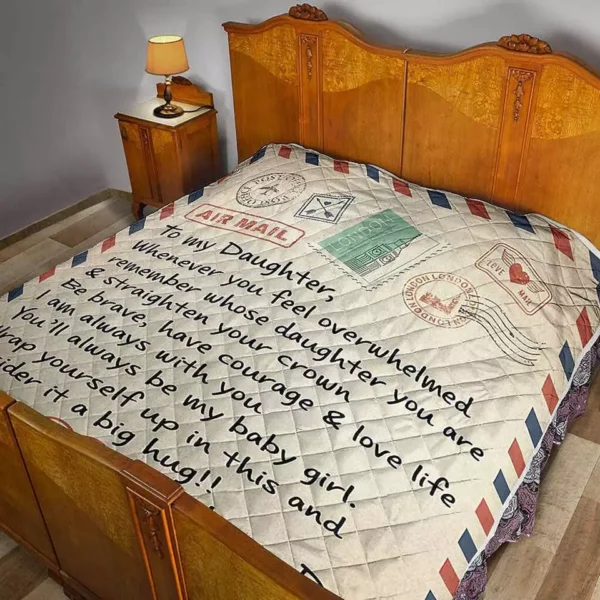 AIR MAIL
LONDON
LOVE
MAIL
LONDON LONDON LONDON LONDON
To my Daughter,
Whenever you feel overwhelmed
remember whose daughter you are
& straighten your crown
Be brave, have courage & love life
I am always with you
You'll always be my baby girl.
rap yourself up in this and
ider it a big hug!!